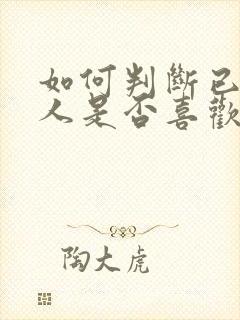 如何判斷已
人是否喜歡
陶大虎